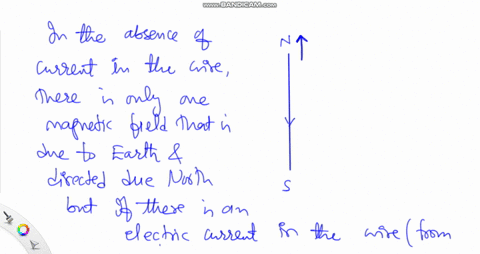 www.BANDICAM.com
In the absence of
current in the wire,
there is only one
magnetic field that is
due to Earth &
directed due North
but if there is an
electric current in the wire (from
N
S